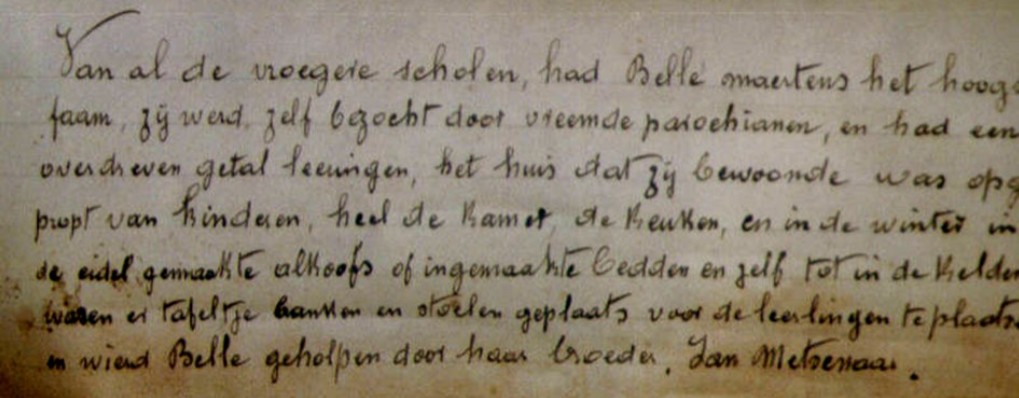 Van al de vroegere scholen, had Belle maertens het hoogs
faam, zij werd, zelf bezocht door vreemde parochianen, en had een
overdreven getal leeringen, het huis dat zij bewoonde was opg
propt van kinderen, heel de kamer, de keuken, en in de winter in
de eidel gemaakte alkoofs of ingemaakte bedden en zelf tot in de kelder
waren er tafeltje banken en stoelen geplaats voor de leerlingen te plaats
en wierd Belle geholpen door haar broeder, Jan Metsenaar.